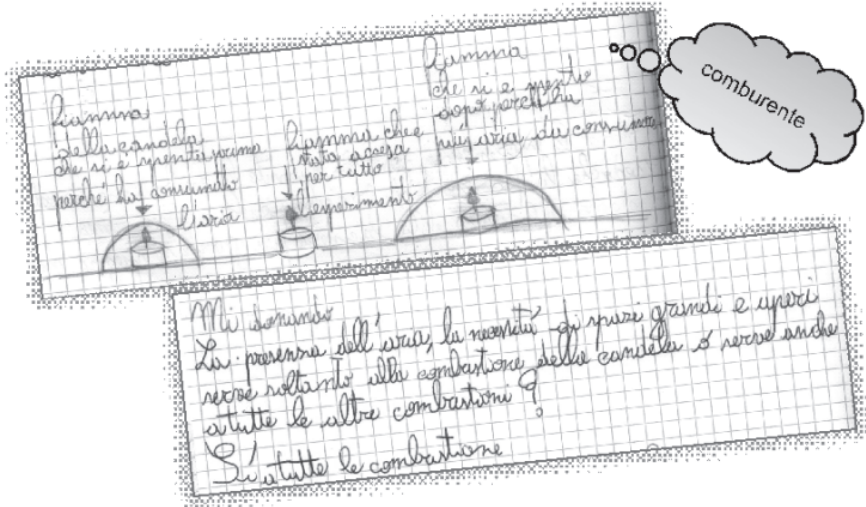 fiamma
della candela
che si è spenta prima
perché ha consumato
l'aria
fiamma che è
stata accesa
per tutto
l'esperimento
fiamma
che si è spenta
dopo perché ha
più aria da consumare
comburente
Mi domando
La presenza dell'aria, la necessità di spazi grandi e aperi
serve soltanto alla combustione della candela o serve anche
a tutte le altre combustioni?
Sì a tutte le combustione